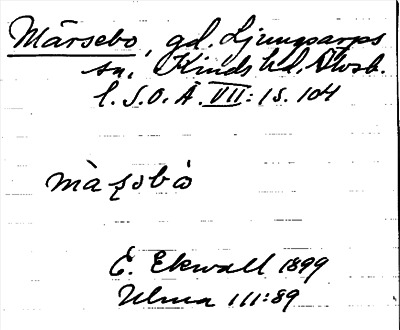 Märsebo, gd. Ljungsarps
sn, Kinds hd. Älvsb.
l. S.O.Ä. VII:1 s. 104
mà ʂobò
E. Ekwall 1899
Ulma 111:89